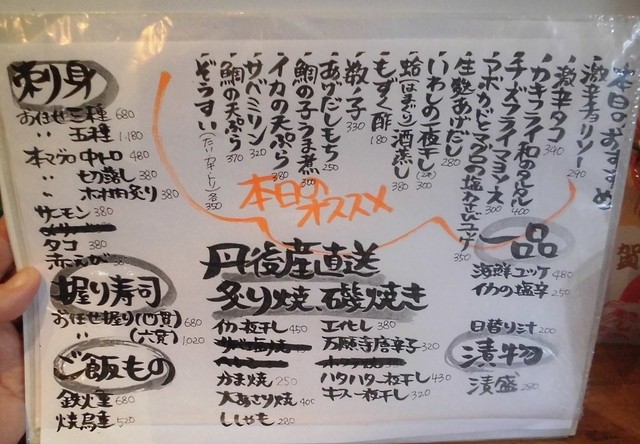 本日のおすすめ
激辛チョリソー 290
激辛タコ 340
カキフライ和のタルタル 400
チーズフライマヨソース 300
マボガドとマグロの塩カセビユッケ 350
生麩あげだし 280
いわしの一夜干し 300
蛤(はまぐり)酒蒸し 380
もずく酢 180
数ノ子 330
あげだしもち 250
鯛の子うま煮 300
イカの天ぷら 380
サバミリン 320
鯛の天ぷら 370
ぞうすい 各350
本日の
オススメ
刺身
おまかせ三種 680
〃 五種 1,180
本マグロ 中トロ 480
〃 切落し 380
〃 ホホ肉炙り 380
サーモン 380
タコ 380
赤えび
握り寿司
おまかせ握り(四貫) 680
〃 (六貫) 1020
ご飯もの
鉄火重 680
焼鳥重 520
丹後産直送
炙り焼、磯焼き
イカ一夜干し 450
かま焼 250
大あさり焼 400
ししゃも 280
エイヒレ 380
万願寺唐辛子 320
ハタハタ一夜干し 430
キス一夜干し 320
一品
海鮮ユッケ 480
イカの塩辛 250
日替り汁 200
漬物
漬盛 280